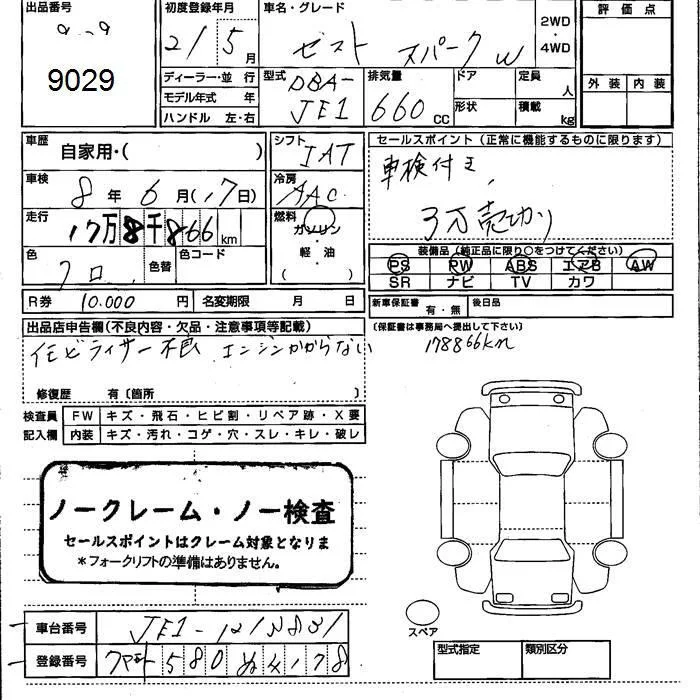 出品番号
9029
初度登録年月
21年5月
ディーラー・並行
モデル年式 年
ハンドル 左・右
車名・グレード
ゼスト スパーク W
2WD
・
4WD
型式
DBA-
JE1
排気量
660 CC
ドア
形状
定員
人
積載
kg
評価点
外装 内装
車歴
自家用・( )
車検
8年6月(17日)
走行
17万8千866km
色
クロ
色替
色コード
シフト
IAT
冷房
AAC
燃料
ガソリン
軽・油
( )
セールスポイント (正常に機能するものに限ります)
車検付き
3万売切り
装備品(純正品に限り○をつけてください)
PS PW ABS エアB AW
SR ナビ TV カワ
R券 10,000 円 名変期限 月 日
新車保証書
有・無
後日品
(保証書は事務局へ提出して下さい)
178866km
出品店申告欄(不良内容・欠品・注意事項等記載)
不良 エンジンかからない
修復歴 有〔箇所 〕
検査員
記入欄
FW キズ・飛石・ヒビ割・リペア跡・X要
内装 キズ・汚れ・コゲ・穴・スレ・キレ・破レ
ノークレーム・ノー検査
セールスポイントはクレーム対象となりま
*フォークリフトの準備はありません。
スペア
車台番号
JE1-
登録番号
580 4178
型式指定 類別区分